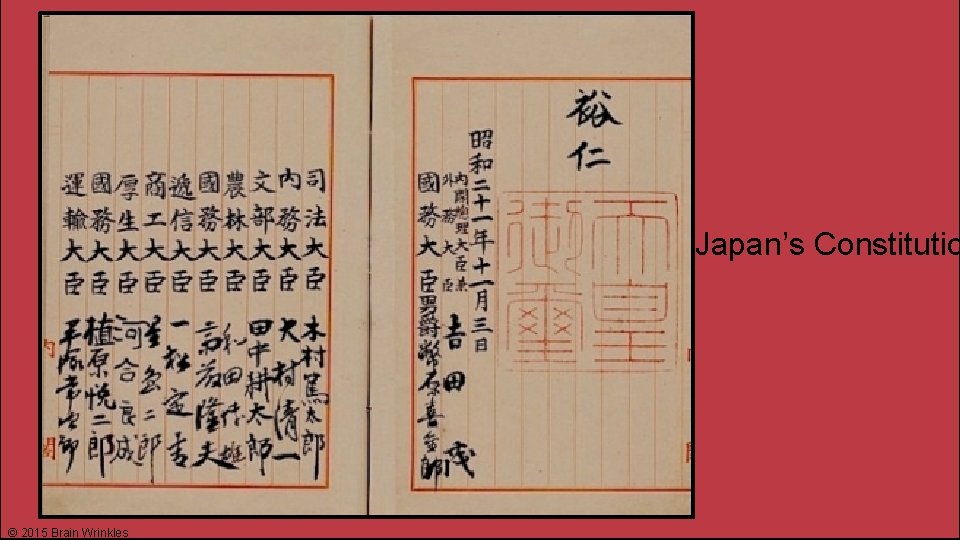 裕仁
天皇
御璽
昭和二十一年十一月三日
内閣總理大臣兼
外務大臣 吉田茂
國務大臣 男爵幣原喜重郎
司法大臣 木村篤太郎
内務大臣 大村清一
文部大臣 田中耕太郎
農林大臣 和田博雄
國務大臣 斎藤隆夫
遞信大臣 一松定吉
商工大臣 星島二郎
厚生大臣 河合良成
國務大臣 植原悦二郎
運輸大臣 平塚常次郎
内閣
Japan’s Constitutio
© 2015 Brain Wrinkles